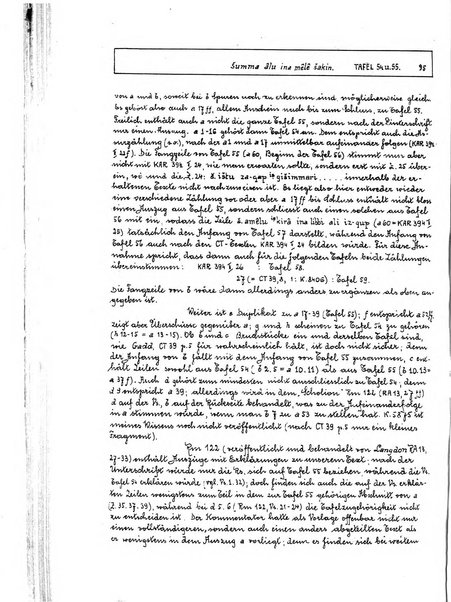 Summa ālu ina mēlē šakin. TAFEL 54 u. 55. 95
von a und b, soweit bei b Spuren noch zu erkennen sind, möglicherweise gleich.
Es gehört also auch a 17ff, allem Anschein nach bis zum Schluss, zu Tafel 55.
Freilich enthält auch a nicht die ganze Tafel 55, sondern nach der Unterschrift
nur einen Auszug. a 1-16 gehört zum Tafel 54 an. Dem entspricht auch die
zählung (s.o.), nach der a1 und a 17 unmittelbar aufeinander folgen (KAR 394
II 22f). Die Fangzeile von Tafel 55 (a 60, Beginn der Tafel 56) stimmt nun aber
nicht mit KAR 394 II 24, wie man erwarten sollte, sondern erst mit Z. 25 über-
ein, wo und die Z. 24: š. ištu za-gap iṣ gišimmari . . . . . innerhalb der er-
haltenen Texte nicht nachzuweisen ist. Es liegt also hier entweder wieder
eine verschiedene Zählung vor oder aber a 17ff bis Schluss enthält nicht bloss
einen Auszug aus Tafel 55, sondern schliesst auch einen solchen aus Tafel
56 mit ein, sodass die Zeile š. amēlu iṣ kirâ ina libbi ali iz-qup (a 60 = KAR 394 II
25) tatsächlich den Anfang von Tafel 57 darstellt, während den Anfang von
Tafel 55 auch nach den CT-Texten KAR 394 II 24 bilden würde. Für diese An-
nahme spricht, dass dann auch für die folgenden Tafeln beide Zählungen
übereinstimmen: KAR 394 II, 26 : Tafel 58.
27 (= CT 39, 8, 1: K. 8406) : Tafel 59.
Die Fangzeile von b wäre dann allerdings anders zu ergänzen als oben an-
gegeben ist.
Weiter ist e Duplikat zu a 17-39 (Tafel 55); f entspricht a 51ff,
zeigt aber Überschüsse gegenüber a; g und h scheinen zu Tafel 54 zu gehören
(h 12-15 = a 13-15). Ob b und c Bruchstücke ein und derselben Tafel sind,
wie Gadd, CT 39 p. 5 für wahrscheinlich hält, ist doch nicht sicher; denn
der Anfang von b fällt mit dem Anfang von Tafel 55 zusammen, c ent-
hält Zeilen sowohl aus Tafel 54 (c 2.5 = a 10.11) als aus Tafel 55 (c 10.13 =
a 37f). Auch d gehört zum mindesten nicht ausschliesslich zu Tafel 54; denn
d 9 entspricht a 39; allerdings wird in dem Scholion Rm 122 (RA 13, 27ff)
d auf der Vs., b auf der Rückseite behandelt, was zu der Aufeinanderfolge
in a stimmen würde, wenn man b 7 zu a 53 zu stellen hat. K. 5875 ist
meines Wissens noch nicht veröffentlicht (nach CT 39 p. 5 nur ein kleiner
Fragment).
Rm 122 (veröffentlicht und behandelt von Langdon RA 13,
27-33) enthält Auszüge mit Erklärungen zu unserem Text; nach der
Unterschrift würde nur die Rs. sich auf Tafel 55 beziehen während die Vs.
Tafel 54 erklären würde (vgl. Vs. 1. 32); doch finden sich auch die auf der Vs. erklär-
ten Zeilen wenigstens zum Teil in dem zur Tafel 55 gehörigen Abschnitt von a
(Z. 35. 37. 39), während bei d 5. 6 (Rm 122, Vs. 21-24) die Tafelzugehörigkeit nicht
zu entscheiden ist. Der Kommentator hatte als Vorlage offenbar nicht nur
einen vollständigeren, sondern auch einen anders gearteten Text als
er wenigstens in dem Auszug a vorliegt; denn er finden sich bei weitem